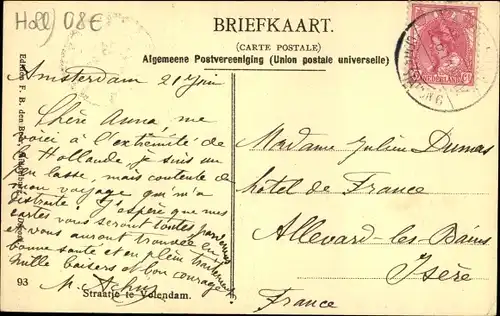 Holl 08€
BRIEFKAART.
(CARTE POSTALE)
Algemeene Postvereeniging (Union postale universelle)
NEDERLAND
Amsterdam 21 Juin
Chère Anna, me
voici à l'extrémité de
la Hollande, je suis un
peu lasse, mais contente de
mon voyage qui m'a
distraite. J'espère que mes
cartes vous seront toutes parvenues
et vous auront trouvée en
bonne santé et en plein traitement
Mille baisers et bon courage
M.
Madame Julien Dumas
hôtel de France
Allevard-les-Bains
Isère
France
93
Straatje te Volendam.
Edition F. B. den Boer, Middelburg